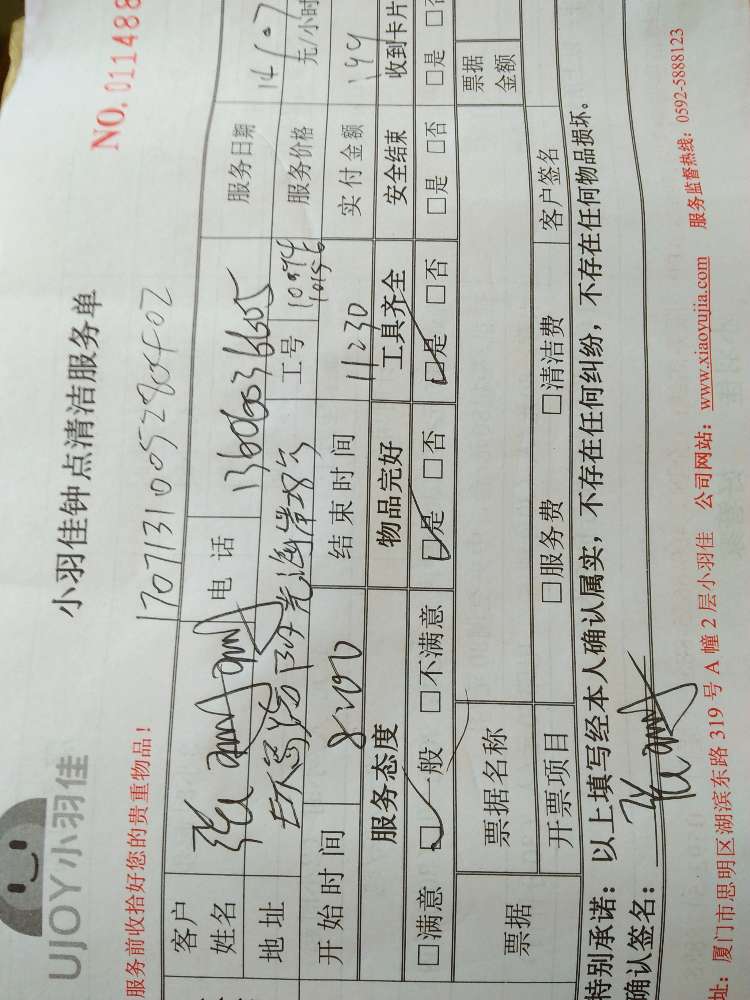 UJOY小羽佳
小羽佳钟点清洁服务单
NO.011488
服务前收拾好您的贵重物品!
客户姓名 张 电话 13606036605 服务日期
地址 阳光海岸 工号 服务价格 元/小时
开始时间 8:00 结束时间 11:30 实付金额 199
服务态度 物品完好 工具齐全 安全结束 收到卡片
□满意 □一般 □不满意 □是 □否 □是 □否 □是 □否 □是
票据 票据名称 票据金额
开票项目 □服务费 □清洁费 客户签名
特别承诺：以上填写经本人确认属实，不存在任何纠纷，不存在任何物品损坏。
确认签名： 张
址：厦门市思明区湖滨东路 319 号 A 幢 2 层小羽佳 公司网站：www.xiaoyujia.com 服务监督热线：0592-5888123